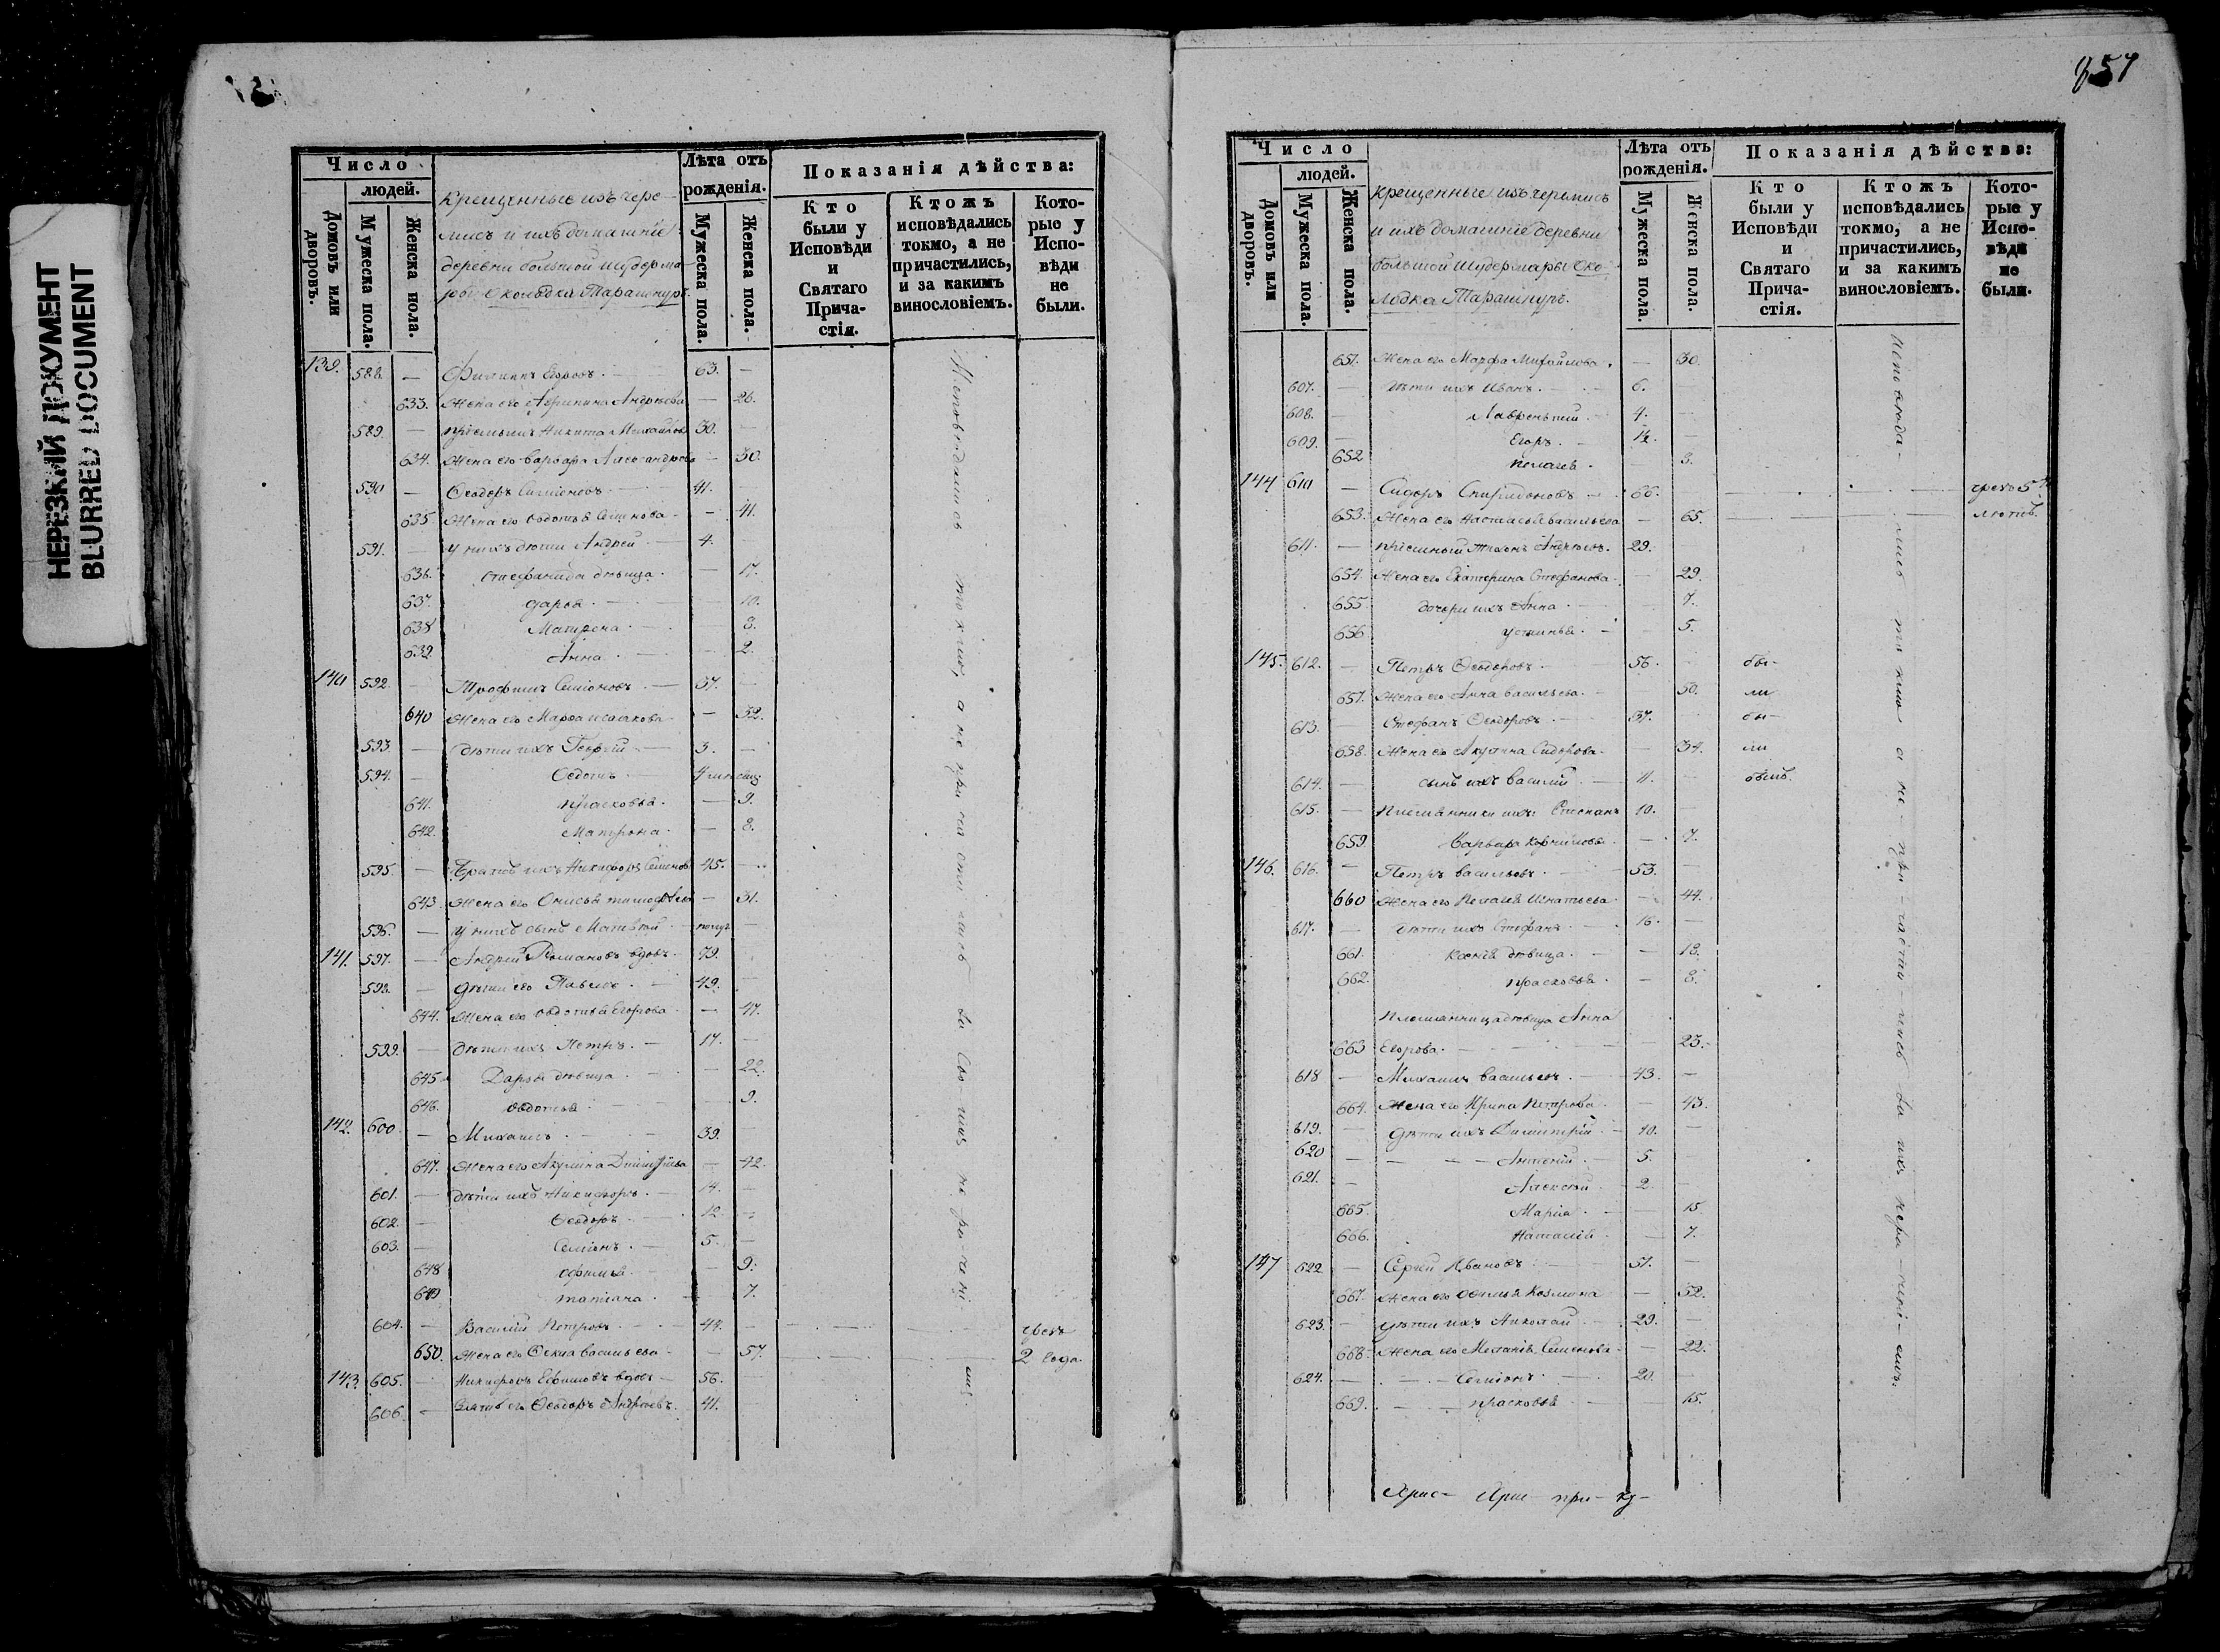 НЕРЕЗКИЙ ДОКУМЕНТ
BLURRED DOCUMENT
Число
людей.
Домовъ или дворовъ.
Мужеска пола.
Женска пола.
крещенные изъ чере-
мисъ и ихъ домашніе
деревни большой Шудерма-
ры Околодка Тарашнуръ.
Лѣта отъ рожденія.
Мужеска пола.
Женска пола.
Показанія дѣйства:
Кто были у Исповѣди и Святаго Прича-стія.
Ктожъ исповѣдались токмо, а не причастились, и за какимъ винословіемъ.
Кото-рые у Испо-вѣди не были.
139. 588. — Филиппъ Егоровъ. 63. —
633. Жена его Агрипина Андрѣева — 26.
589. — пріемышъ Никита Михайловъ 30. —
634. Жена его Варвара Александрова — 30.
590 — Ѳеодоръ Симіоновъ 41.
635 Жена его Овдотья Семенова — 41.
591. — у нихъ дѣти Андрей 4. —
636. Стефанида дѣвица. — 17.
637. Дарья. — 10.
638 Матрена. — 8.
639 Анна — 2.
140 592. — Трофимъ Семіоновъ. 37. —
640 Жена его Марѳа Исаакова — 32.
593. — дѣти ихъ Георгій 3. —
594. — Ѳедотъ 4 мѣсяц.
641. прасковья. — 9.
642. Матрона. — 8.
595. — братъ ихъ Никифоръ Семенов 45. —
643. Жена его Онисья — 31.
596. — у нихъ сынъ Матвѣй — полуг. —
141. 597. — Андрей Романовъ вдовъ. 79.
598. — дѣти его Павелъ. 49. —
644. Жена его Овдотья Егорова — 47.
599. — дѣти ихъ Петръ. 17. —
645. Дарья дѣвица. — 22.
646. Овдотья — 9.
142. 600. — Михаилъ. 39. —
647. Жена его Акулина Дмитріева — 42.
601. — дѣти ихъ Никифоръ. 14. —
602. — Ѳеодоръ 12. —
603. — Семіонъ. 5. —
648 — 9.
649 татіана. — 7.
604. — Василій Петровъ 44. — чрезъ
650. Жена его Ѳекла Васильева — 57. 2 года.
143. 605. — Никифоръ Ефимовъ вдовъ — 56. —
606. — зять его Ѳеодоръ Андреевъ. 41.
Исповѣдались токмо, а не причастились за Со ихъ нераченіемъ.
857
Число
людей.
Домовъ или дворовъ.
Мужеска пола.
Женска пола.
крещенные изъ черемисъ
и ихъ домашніе деревни
большой Шудермары Око-
лодка Тарашнуръ.
Лѣта отъ рожденія.
Мужеска пола.
Женска пола.
Показанія дѣйства:
Кто были у Исповѣди и Святаго Прича-стія.
Ктожъ исповѣдались токмо, а не причастились, и за какимъ винословіемъ.
Кото-рые у Испо-вѣди не были.
651. Жена его Марфа Михайлова. — 30.
607. — дѣти ихъ Иванъ. 6. —
608. — Лаврентій 4. —
609. — Егоръ. —
652 пелагея. — 3.
144 610 — Сидоръ Спиридоновъ 66. чрезъ 5ть
653. Жена его Настасья Васильева — 65. лѣтъ.
611. — пріемный Андрѣевъ. 29.
654. Жена его Екатерина Стефанова. — 29.
655. дочери ихъ Анна — 7.
656. устинья. — 5.
145. 612. — Петръ Ѳеодоровъ 56. бы-
657. Жена его Анна Васильева. — 50. ли
613. — Стефанъ Ѳеодоровъ 37. бы-
658. Жена его Акулина Сидорова. — 34. ли
614. — сынъ ихъ Василій 11. былъ.
615. — племянники ихъ Степанъ 10. —
659. Варвара Корнилова — 7.
146. 616. — Петръ Васильевъ. 53.
660 Жена его Пелагея Игнатьева — 44.
617. — дѣти ихъ Стефанъ 16. —
661. Ксенія дѣвица. — 18.
662. прасковья. — 8.
племянница дѣвица Анна
663 Егорова. — 23.
618 — Михаилъ Васильевъ. 43. —
664. Жена его Ирина Петрова. — 43.
619. — дѣти ихъ Димитрій 10. —
620 — 5.
621. — Алексѣй 2
665. Марія — 15.
666. Наталія — 7.
147 622 — Сергій Ивановъ 51. —
667. Жена его Козмина — 52.
623. — дѣти ихъ Николай 29. —
668. Жена его Меланія Семенова — 22.
624. — Семіонъ. 20. —
669. прасковья — 15.
исповѣдались токмо а не причастились за ихъ нераченіемъ.